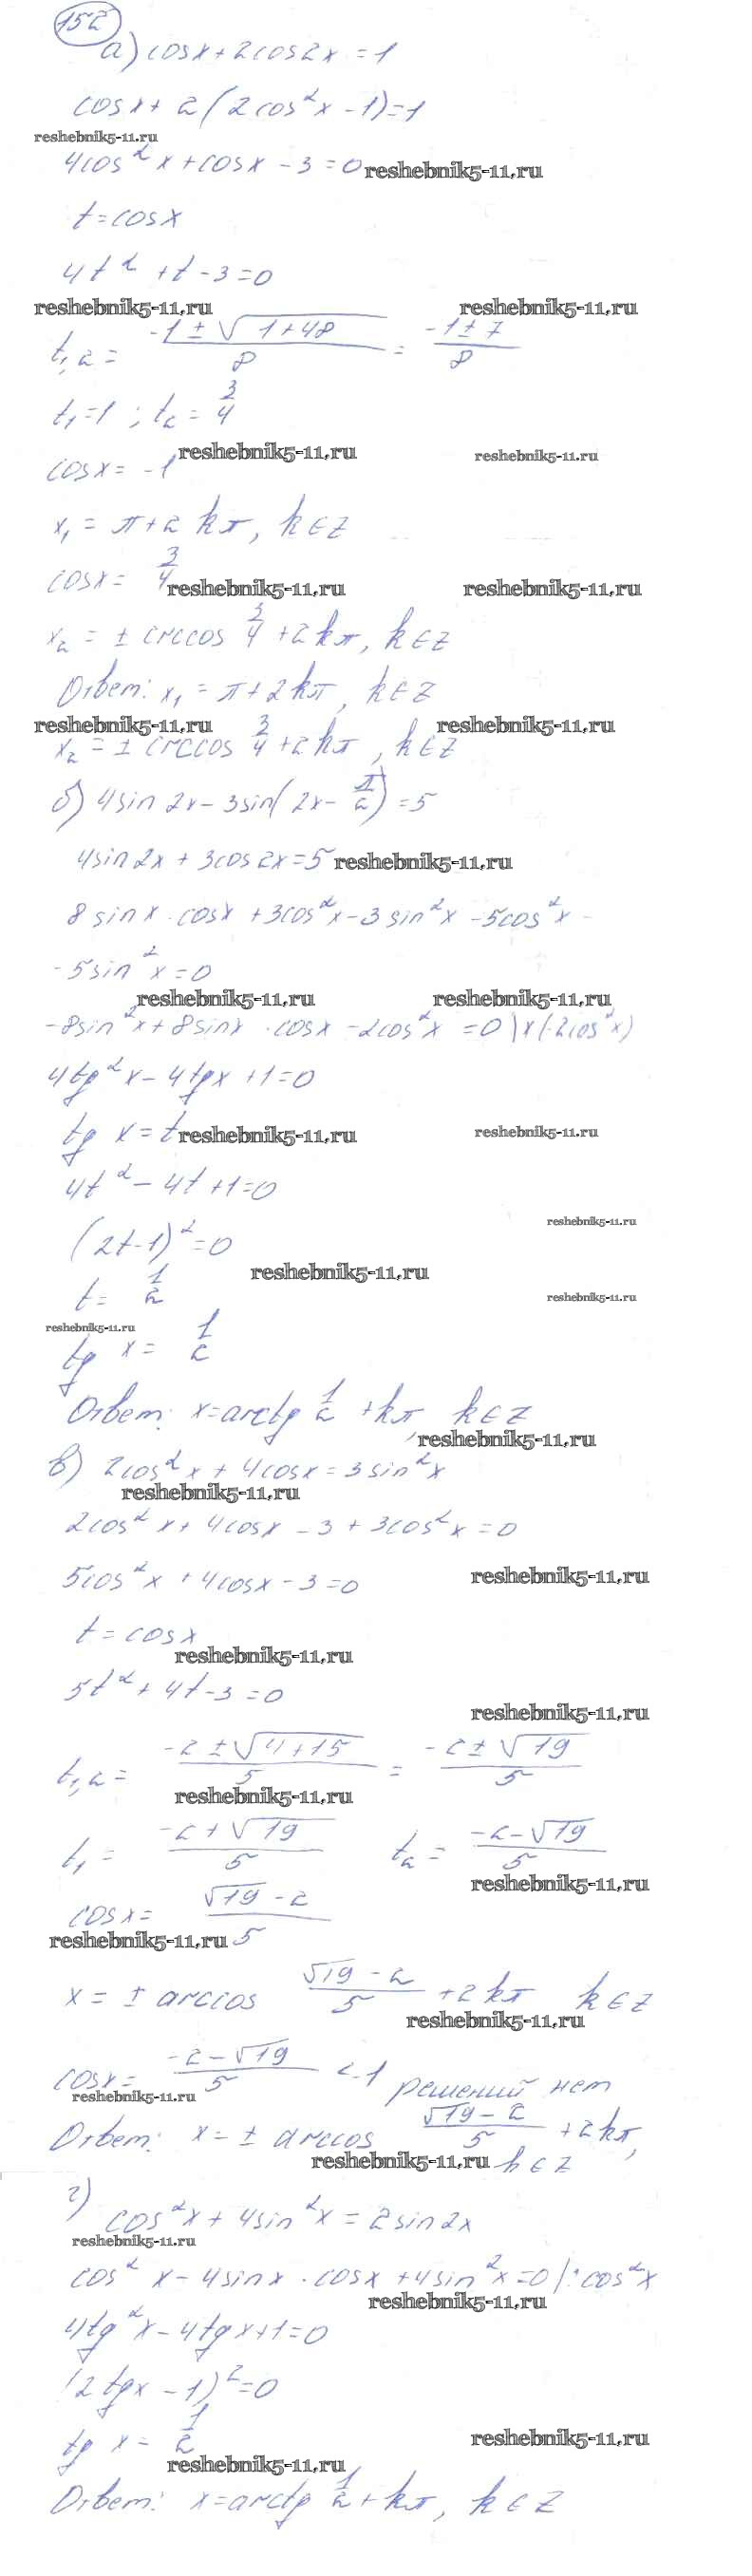 152
а) cosx + 2cos2x = 1
cosx + 2(2cos²x - 1) = 1
reshebnik5-11.ru
4cos²x + cosx - 3 = 0 reshebnik5-11.ru
t = cosx
4t² + t - 3 = 0
reshebnik5-11.ru reshebnik5-11.ru
t₁,₂ = (-1 ± √(1+48))/8 = (-1 ± 7)/8
t₁ = 1 ; t₂ = 3/4
reshebnik5-11.ru reshebnik5-11.ru
cosx = -1
x₁ = π + 2kπ, k∈Z
cosx = 3/4 reshebnik5-11.ru reshebnik5-11.ru
x₂ = ± arccos 3/4 + 2kπ, k∈Z
Ответ: x₁ = π + 2kπ, k∈Z
reshebnik5-11.ru reshebnik5-11.ru
x₂ = ± arccos 3/4 + 2kπ, k∈Z
б) 4sin2x - 3sin(2x - π/2) = 5
4sin2x + 3cos2x = 5 reshebnik5-11.ru
8sinx · cosx + 3cos²x - 3sin²x - 5cos²x -
- 5sin²x = 0
reshebnik5-11.ru reshebnik5-11.ru
-8sin²x + 8sinx · cosx - 2cos²x = 0 | x(-2cos²x)
4tg²x - 4tgx + 1 = 0
tg x = t reshebnik5-11.ru reshebnik5-11.ru
4t² - 4t + 1 = 0
reshebnik5-11.ru
(2t-1)² = 0
reshebnik5-11.ru
t = 1/2 reshebnik5-11.ru
reshebnik5-11.ru
tg x = 1/2
Ответ: x = arctg 1/2 + kπ, k∈Z
reshebnik5-11.ru
в) 2cos²x + 4cosx = 3sin²x
reshebnik5-11.ru
2cos²x + 4cosx - 3 + 3cos²x = 0
5cos²x + 4cosx - 3 = 0 reshebnik5-11.ru
t = cosx
reshebnik5-11.ru
5t² + 4t - 3 = 0
reshebnik5-11.ru
t₁,₂ = (-2 ± √(4+15))/5 = (-2 ± √19)/5
reshebnik5-11.ru
t₁ = (-2 + √19)/5 t₂ = (-2 - √19)/5
reshebnik5-11.ru
cosx = (√19 - 2)/5
reshebnik5-11.ru
x = ± arccos (√19 - 2)/5 + 2kπ k∈Z
reshebnik5-11.ru
cosx = (-2 - √19)/5 < -1 решений нет
reshebnik5-11.ru
Ответ: x = ± arccos (√19 - 2)/5 + 2kπ,
reshebnik5-11.ru k∈Z
г) cos²x + 4sin²x = 2sin2x
reshebnik5-11.ru
cos²x - 4sinx · cosx + 4sin²x = 0 |: cos²x
reshebnik5-11.ru
4tg²x - 4tgx + 1 = 0
(2tgx - 1)² = 0
tg x = 1/2 reshebnik5-11.ru
reshebnik5-11.ru
Ответ: x = arctg 1/2 + kπ, k∈Z